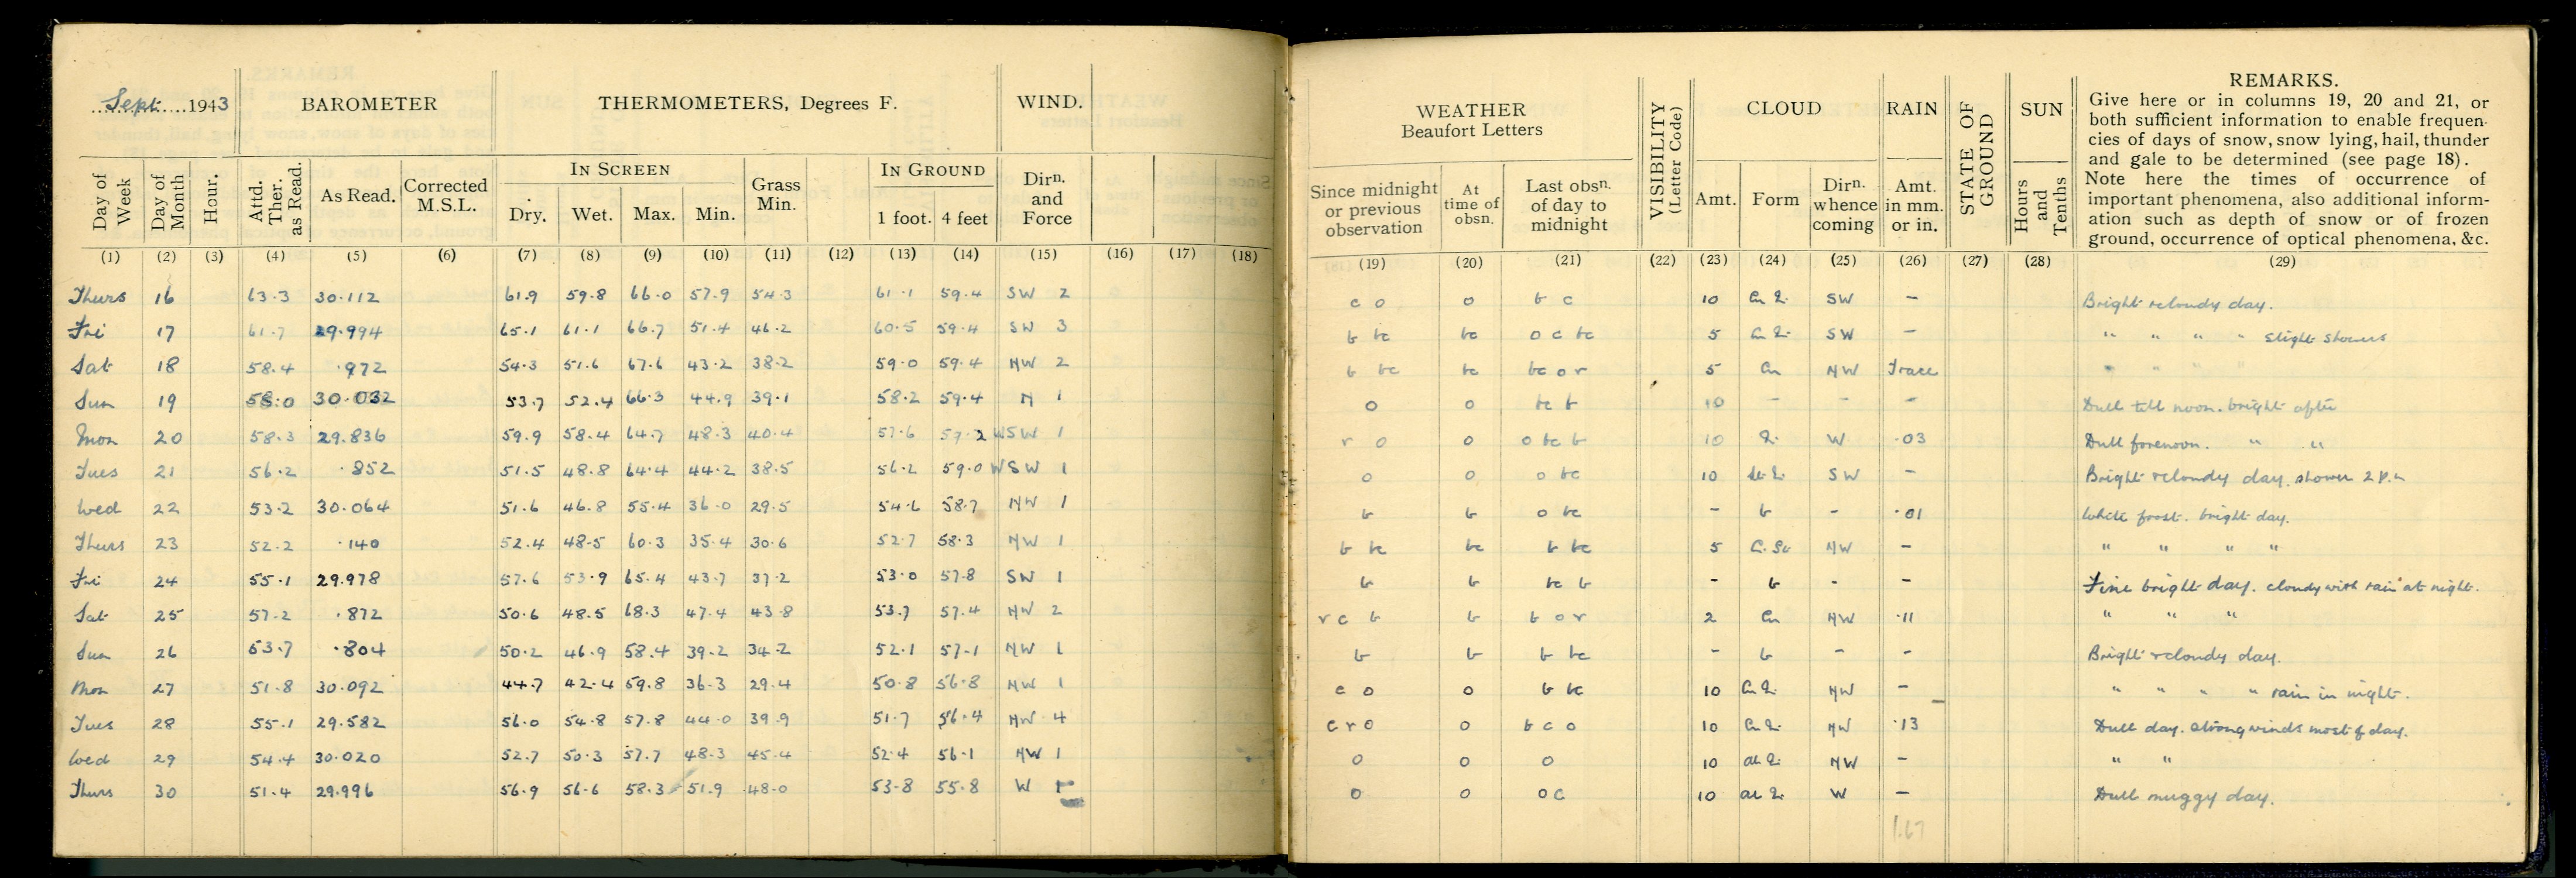 Sept. 1943 BAROMETER THERMOMETERS, Degrees F. WIND. WEATHER Beaufort Letters VISIBILITY (Letter Code) CLOUD RAIN STATE OF GROUND SUN REMARKS.
Give here or in columns 19, 20 and 21, or
both sufficient information to enable frequen-
cies of days of snow, snow lying, hail, thunder
and gale to be determined (see page 18).
Note here the times of occurrence of
important phenomena, also additional inform-
ation such as depth of snow or of frozen
ground, occurrence of optical phenomena, &c.
IN SCREEN IN GROUND
Day of Week Day of Month Hour. Attd. Ther. as Read. As Read. Corrected M.S.L. Dry. Wet. Max. Min. Grass Min. 1 foot. 4 feet Dirn. and Force Since midnight or previous observation At time of obsn. Last obsn. of day to midnight Amt. Form Dirn. whence coming Amt. in mm. or in. Hours and Tenths
(1) (2) (3) (4) (5) (6) (7) (8) (9) (10) (11) (12) (13) (14) (15) (16) (17) (18) (19) (20) (21) (22) (23) (24) (25) (26) (27) (28) (29)
Thurs 16 63.3 30.112 61.9 59.8 66.0 57.9 54.3 61.1 59.4 SW 2 c o o b c 10 SW - Bright & cloudy day.
Fri 17 61.7 29.994 65.1 61.1 66.7 51.4 46.2 60.5 59.4 SW 3 b bc bc o c bc 5 SW - " " " " slight showers
Sat 18 58.4 .972 54.3 51.6 67.6 43.2 38.2 59.0 59.4 NW 2 b bc bc bc o r 5 Cu NW Trace " " " "
Sun 19 58.0 30.032 53.7 52.4 66.3 44.9 39.1 58.2 59.4 N 1 o o bc b 10 - - - Dull till noon. bright after
Mon 20 58.3 29.836 59.9 58.4 64.7 48.3 40.4 57.6 59.2 WSW 1 r o o o bc b 10 W .03 Dull forenoon. " "
Tues 21 56.2 .852 51.5 48.8 64.4 44.2 38.5 56.2 59.0 WSW 1 o o o bc 10 SW - Bright & cloudy day. shower 2 p.m
Wed 22 53.2 30.064 51.6 46.8 55.4 36.0 29.5 54.6 58.7 NW 1 b b o bc - b - .01 White frost. bright day.
Thurs 23 52.2 .140 52.4 48.5 60.3 35.4 30.6 52.7 58.3 NW 1 b bc bc b bc 5 NW - " " " "
Fri 24 55.1 29.978 57.6 53.9 65.4 43.7 37.2 53.0 57.8 SW 1 b b bc b - b - - Fine bright day. cloudy with rain at night.
Sat 25 57.2 .872 50.6 48.5 68.3 47.4 43.8 53.7 57.4 NW 2 r c b b b o r 2 Cu NW .11 " " "
Sun 26 53.7 .804 50.2 46.9 58.4 39.2 34.2 52.1 57.1 NW 1 b b b bc - b - - Bright & cloudy day.
Mon 27 51.8 30.092 44.7 42.4 59.8 36.3 29.4 50.8 56.8 NW 1 c o o b bc 10 NW - " " " " rain in night.
Tues 28 55.1 29.582 56.0 54.8 57.8 44.0 39.9 51.7 56.4 NW 4 c r o o b c o 10 NW .13 Dull day. strong winds most of day.
Wed 29 54.4 30.020 52.7 50.3 57.7 48.3 45.4 52.4 56.1 NW 1 o o o 10 NW - " "
Thurs 30 51.4 29.996 56.9 56.6 58.3 51.9 48.0 53.8 55.8 W 1 o o o c 10 W - Dull muggy day.
1.67